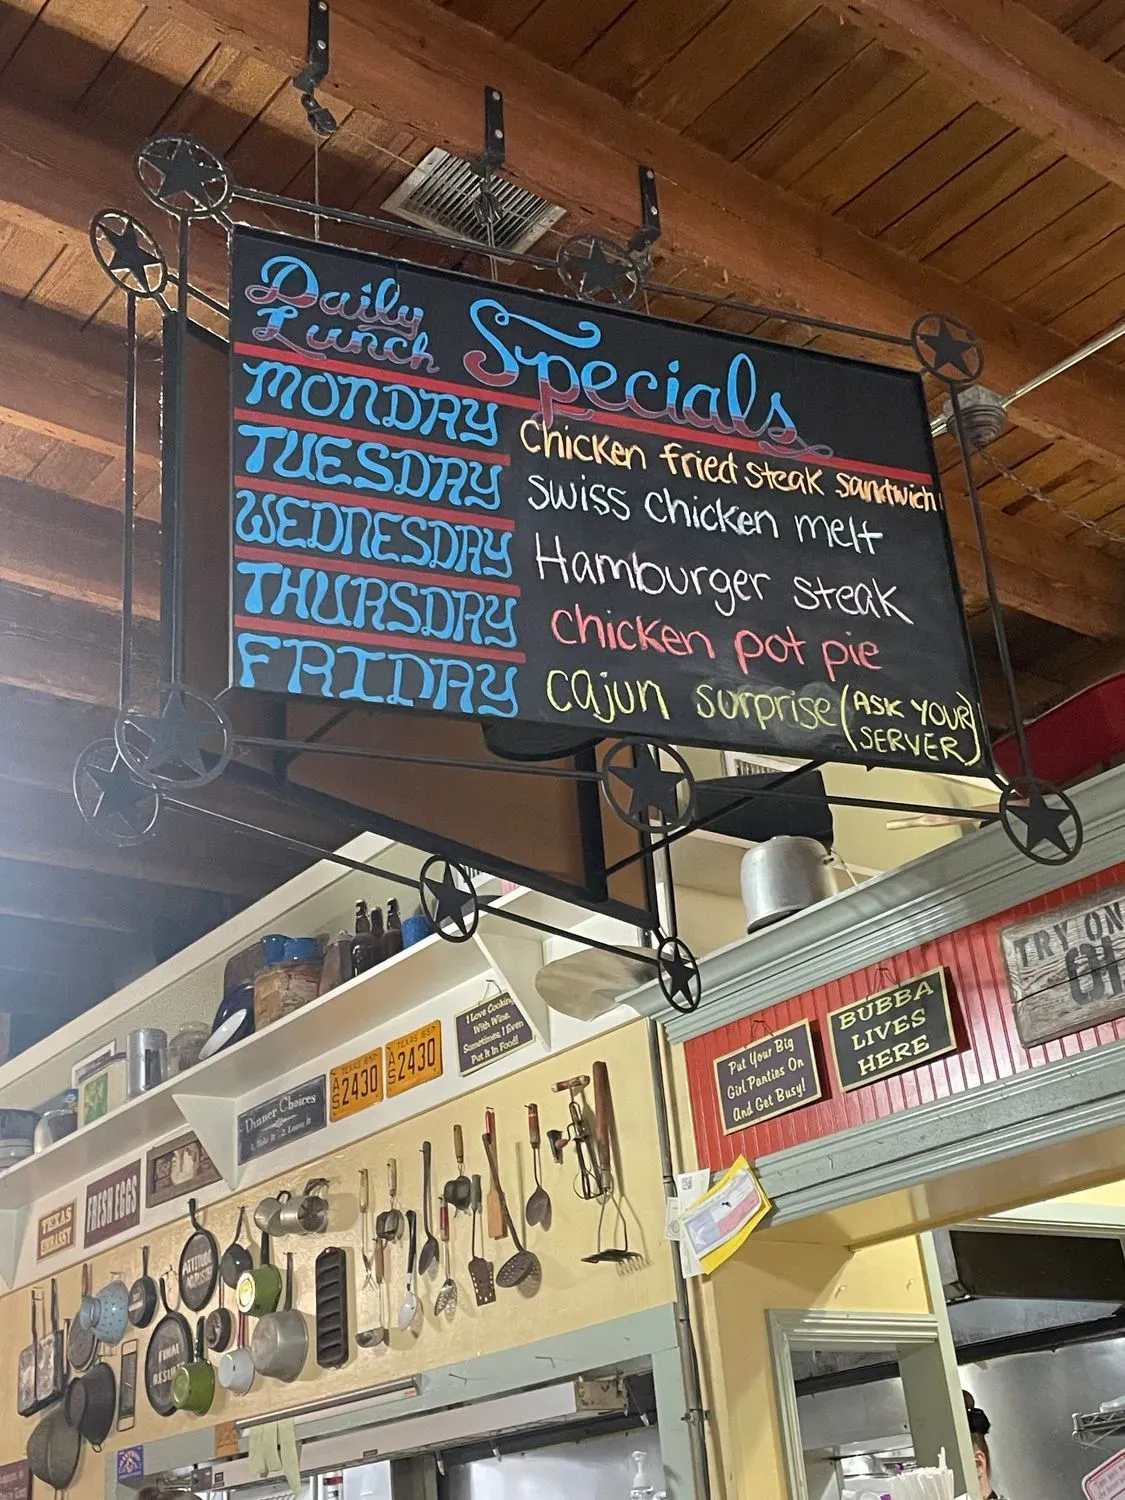 Daily
Lunch
Specials
MONDAY Chicken fried steak sandwich
TUESDAY swiss chicken melt
WEDNESDAY Hamburger steak
THURSDAY chicken pot pie
FRIDAY cajun surprise (ASK YOUR
SERVER)
I Love Cooking
With Wine.
Sometimes, I Even
Put It In Food!
TEXAS
2430
TEXAS
2430
Dinner Choices
1. Take It 2. Leave It
FRESH EGGS
TEXAS
EMBASSY
Put Your Big
Girl Panties On
And Get Busy!
BUBBA
LIVES
HERE
TRY ON
FINAL